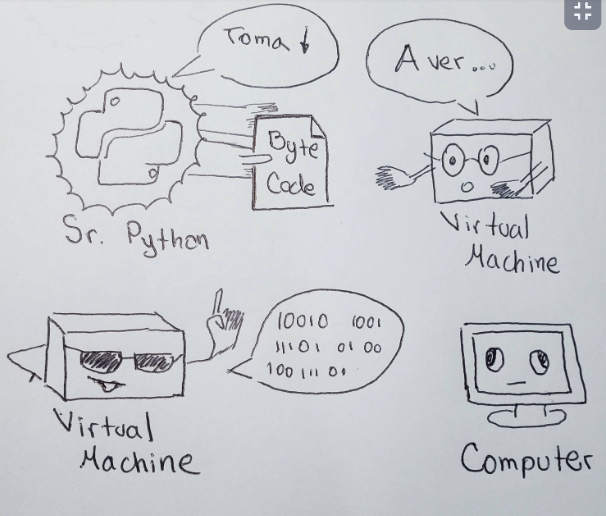 Toma
Byte
Code
Sr. Python
A ver...
Virtual
Machine
10010 1001
11101 01 00
100 111 01
Virtual
Machine
Computer